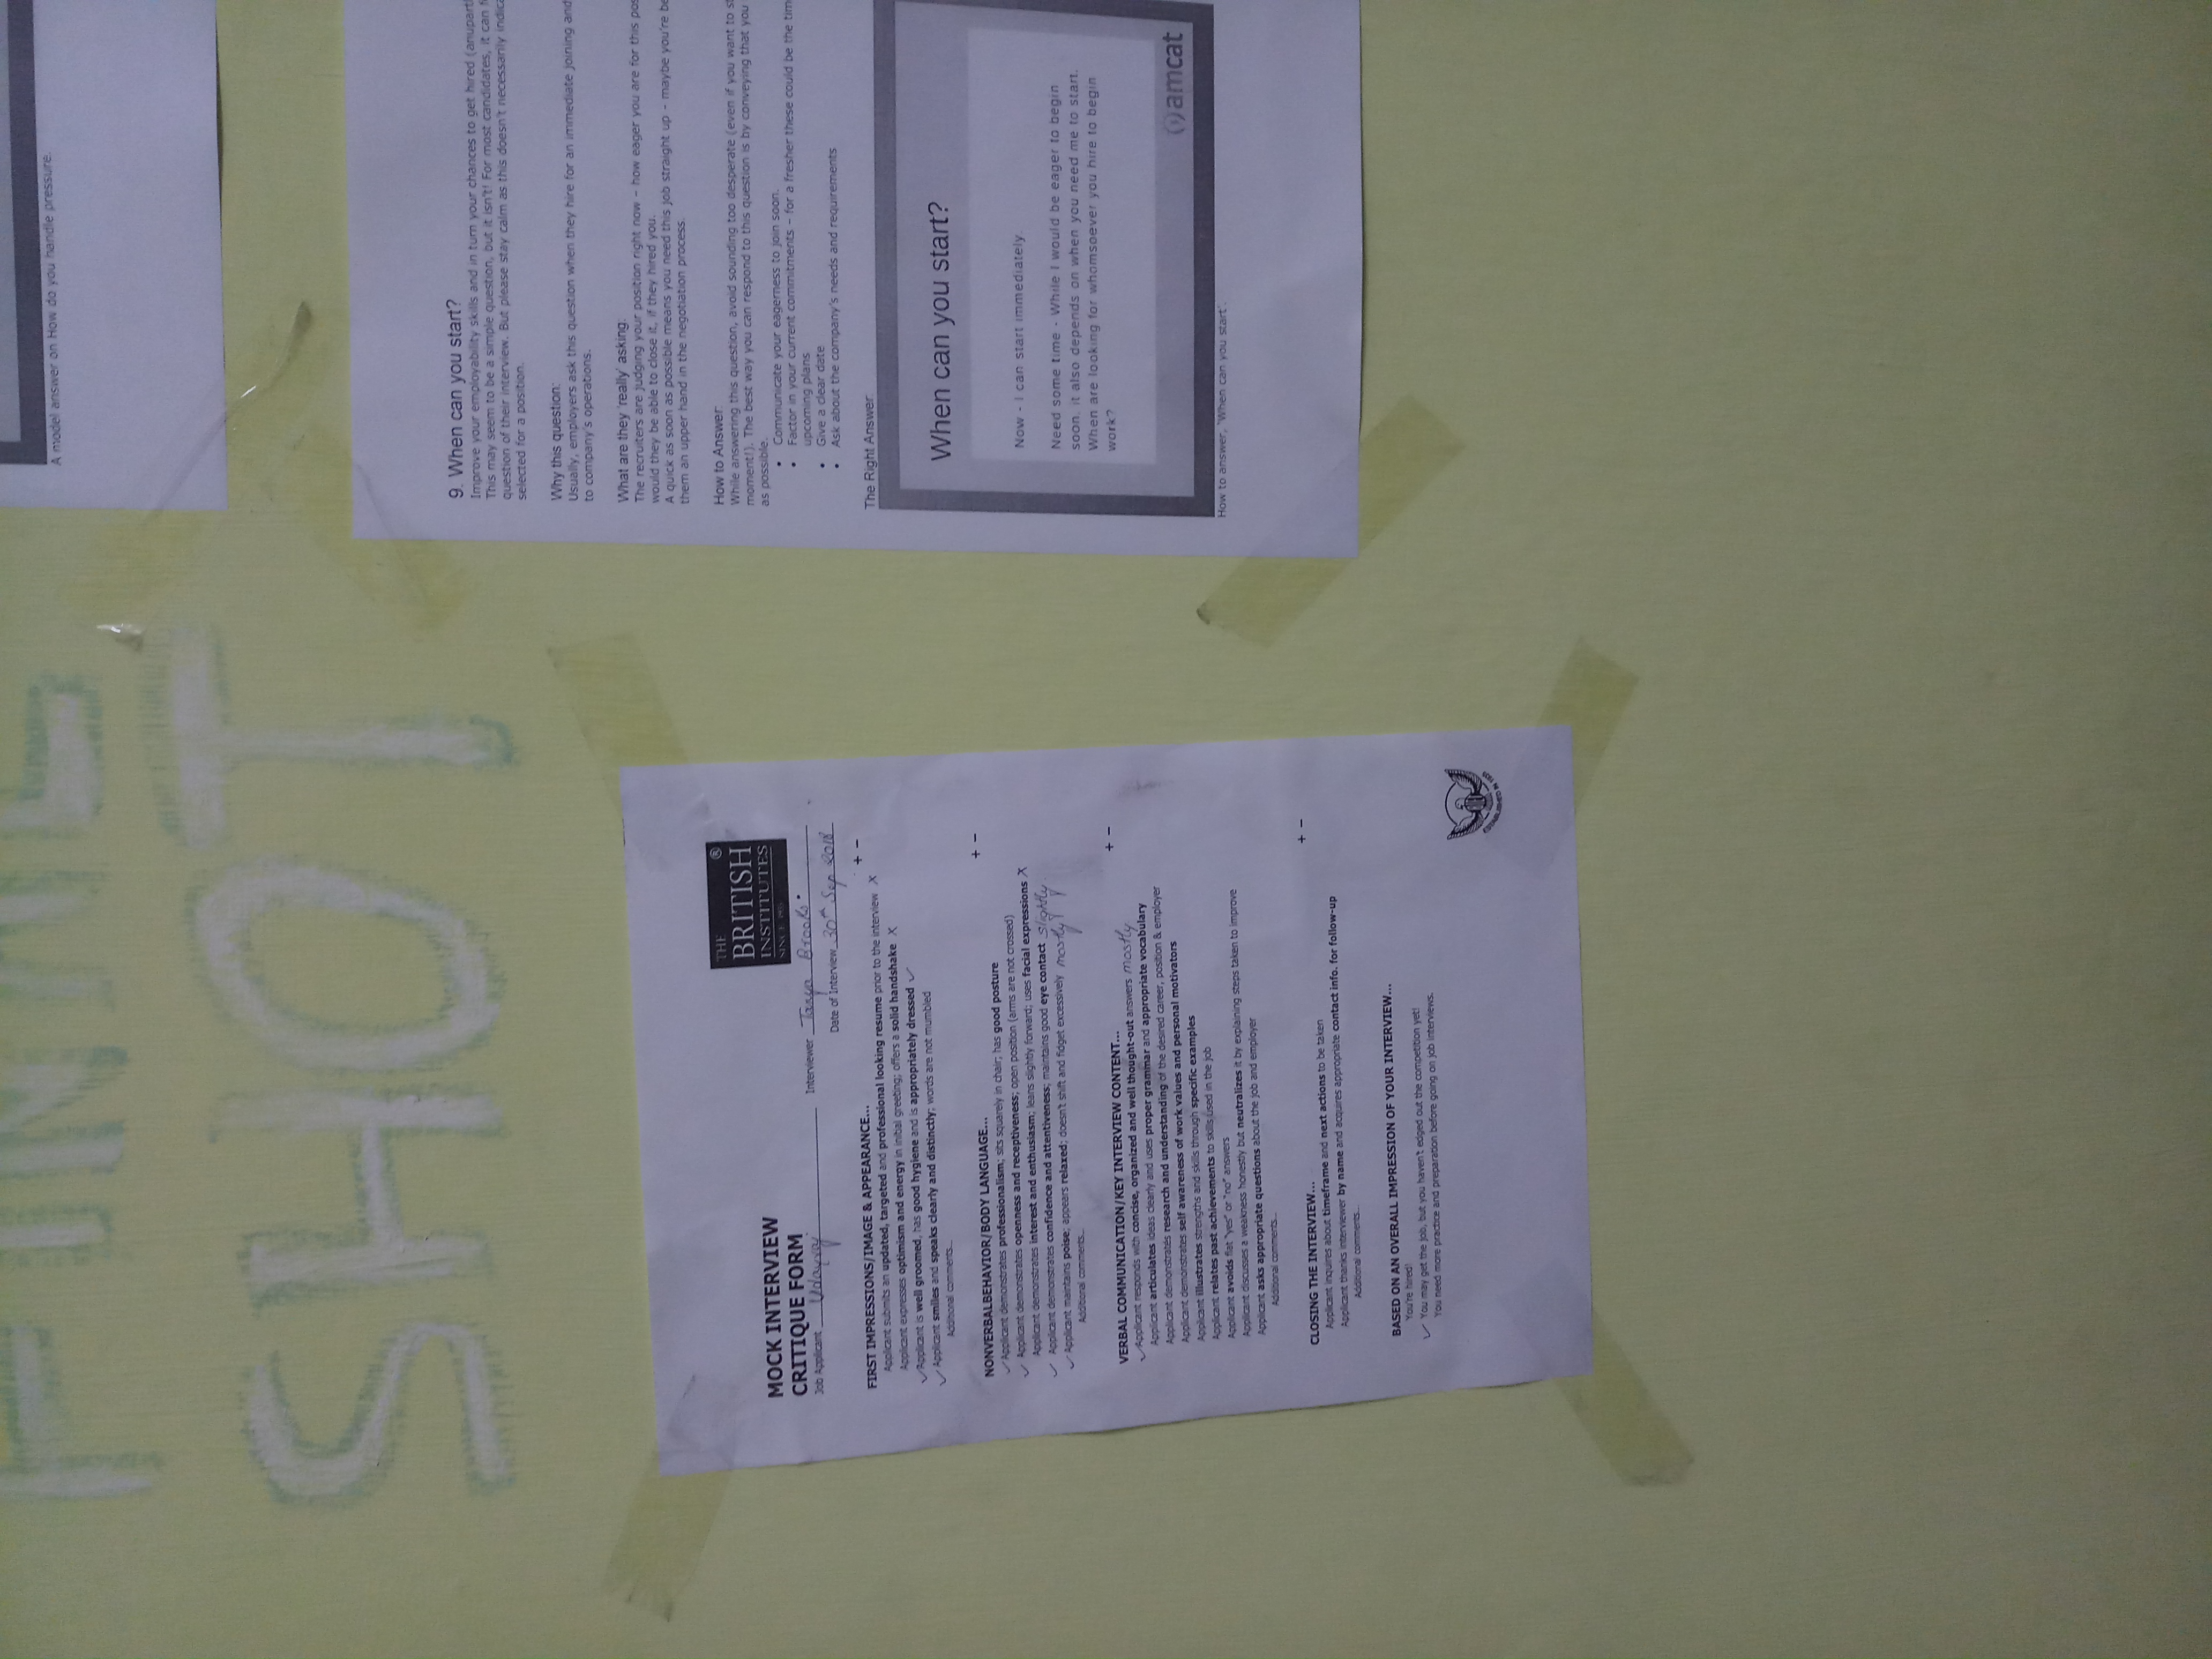 FINAL
SHOT
A model answer on How do you handle pressure.
THE ®
BRITISH
INSTITUTES
SINCE 1935
MOCK INTERVIEW
CRITIQUE FORM
Job Applicant Udayraj
Interviewer Tanya Brooks
Date of Interview 30th Sep 2018
FIRST IMPRESSIONS/IMAGE & APPEARANCE... + -
Applicant submits an updated, targeted and professional looking resume prior to the interview X
Applicant expresses optimism and energy in initial greeting; offers a solid handshake X
✓ Applicant is well groomed, has good hygiene and is appropriately dressed ✓
✓ Applicant smiles and speaks clearly and distinctly; words are not mumbled
Additional comments...
NONVERBALBEHAVIOR/BODY LANGUAGE... + -
✓ Applicant demonstrates professionalism; sits squarely in chair; has good posture
✓ Applicant demonstrates openness and receptiveness; open position (arms are not crossed)
Applicant demonstrates interest and enthusiasm; leans slightly forward; uses facial expressions X
✓ Applicant demonstrates confidence and attentiveness; maintains good eye contact slightly
✓ Applicant maintains poise; appears relaxed; doesn't shift and fidget excessively mostly
Additional comments...
VERBAL COMMUNICATION/KEY INTERVIEW CONTENT... + -
✓ Applicant responds with concise, organized and well thought-out answers mostly
Applicant articulates ideas clearly and uses proper grammar and appropriate vocabulary
Applicant demonstrates research and understanding of the desired career, position & employer
Applicant demonstrates self awareness of work values and personal motivators
Applicant illustrates strengths and skills through specific examples
Applicant relates past achievements to skills used in the job
Applicant avoids flat "yes" or "no" answers
Applicant discusses a weakness honestly but neutralizes it by explaining steps taken to improve
Applicant asks appropriate questions about the job and employer
Additional comments...
CLOSING THE INTERVIEW... + -
Applicant inquires about timeframe and next actions to be taken
Applicant thanks interviewer by name and acquires appropriate contact info. for follow-up
Additional comments...
BASED ON AN OVERALL IMPRESSION OF YOUR INTERVIEW...
You're hired!
✓ You may get the job, but you haven't edged out the competition yet!
You need more practice and preparation before going on job interviews.
ESTABLISHED IN 1935
9. When can you start?
Improve your employability skills and in turn your chances to get hired
This may seem to be a simple question, but it isn't! For most candidates, it can
question of their interview. But please stay calm as this doesn't necessarily
selected for a position.
Why this question:
Usually, employers ask this question when they hire for an immediate joining and
to company's operations.
What are they 'really' asking:
The recruiters are judging your position right now – how eager you are for this
would they be able to close it, if they hired you.
A quick as soon as possible means you need this job straight up – maybe you're
them an upper hand in the negotiation process.
How to Answer:
While answering this question, avoid sounding too desperate (even if you want to
moment!). The best way you can respond to this question is by conveying that you
as possible.
• Communicate your eagerness to join soon.
• Factor in your current commitments – for a fresher these could be the
upcoming plans
• Give a clear date
• Ask about the company's needs and requirements
The Right Answer:
When can you start?
Now - I can start immediately.
Need some time - While I would be eager to begin
soon, it also depends on when you need me to start.
When are looking for whomsoever you hire to begin
work?
amcat
How to answer, "When can you start".